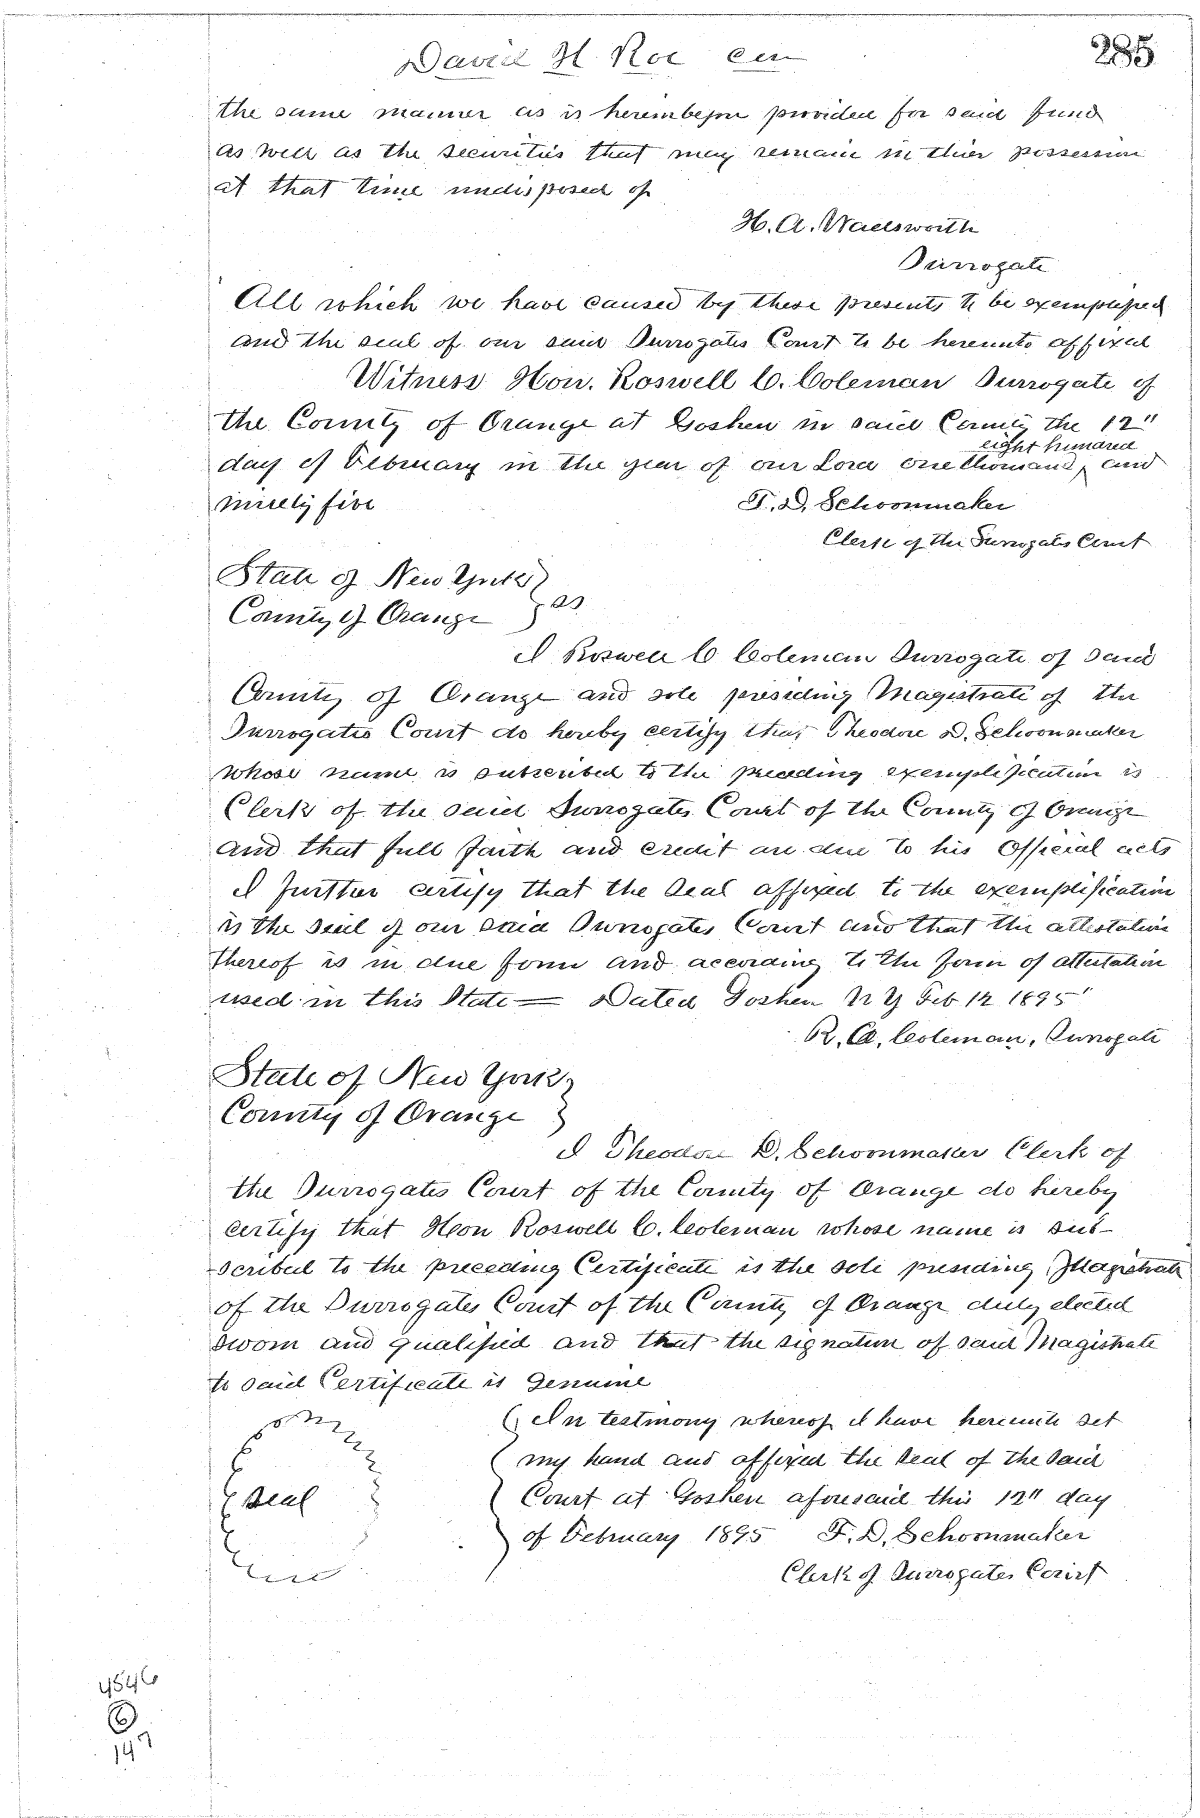 David H. Roe
285
the same manner as is hereinbefore provided for said fund
as well as the securities that may remain in thier possession
at that time undisposed of
H. A. Wadsworth
Surrogate
All which we have caused by these presents to be exemplified
and the seal of our said Surrogates Court to be hereunto affixed
Witness Hon. Roswell C. Coleman Surrogate of
the County of Orange at Goshen in said County the 12"
eight hundred
day of February in the year of our Lord one thousand, and
ninety five
T. D. Schoonmaker
Clerk of the Surrogates Court
State of New York }
County of Orange } ss
I Roswell C Coleman Surrogate of said
County of Orange and sole presiding Magistrate of the
Surrogates Court do hereby certify that Theodore D. Schoonmaker
whose name is subscribed to the preceding exemplification is
Clerk of the said Surrogates Court of the County of Orange
and that full faith and credit are due to his Official acts
I further certify that the seal affixed to the exemplification
is the seal of our said Surrogates Court and that the attestation
thereof is in due form and according to the form of attestation
used in this State = Dated Goshen N Y Feb 12 1895"
R. C. Coleman, Surrogate
State of New York }
County of Orange }
I Theodore D. Schoonmaker Clerk of
the Surrogates Court of the County of Orange do hereby
certify that Hon Roswell C. Coleman whose name is sub-
scribed to the preceding Certificate is the sole presiding Magistrate
of the Surrogates Court of the County of Orange duly elected
sworn and qualified and that the signature of said Magistrate
to said Certificate is Genuine
In testimony whereof I have hereunto set
my hand and affixed the seal of the said
seal
Court at Goshen aforesaid this 12" day
of February 1895 T. D. Schoonmaker
Clerk of Surrogates Court
4546
6
147